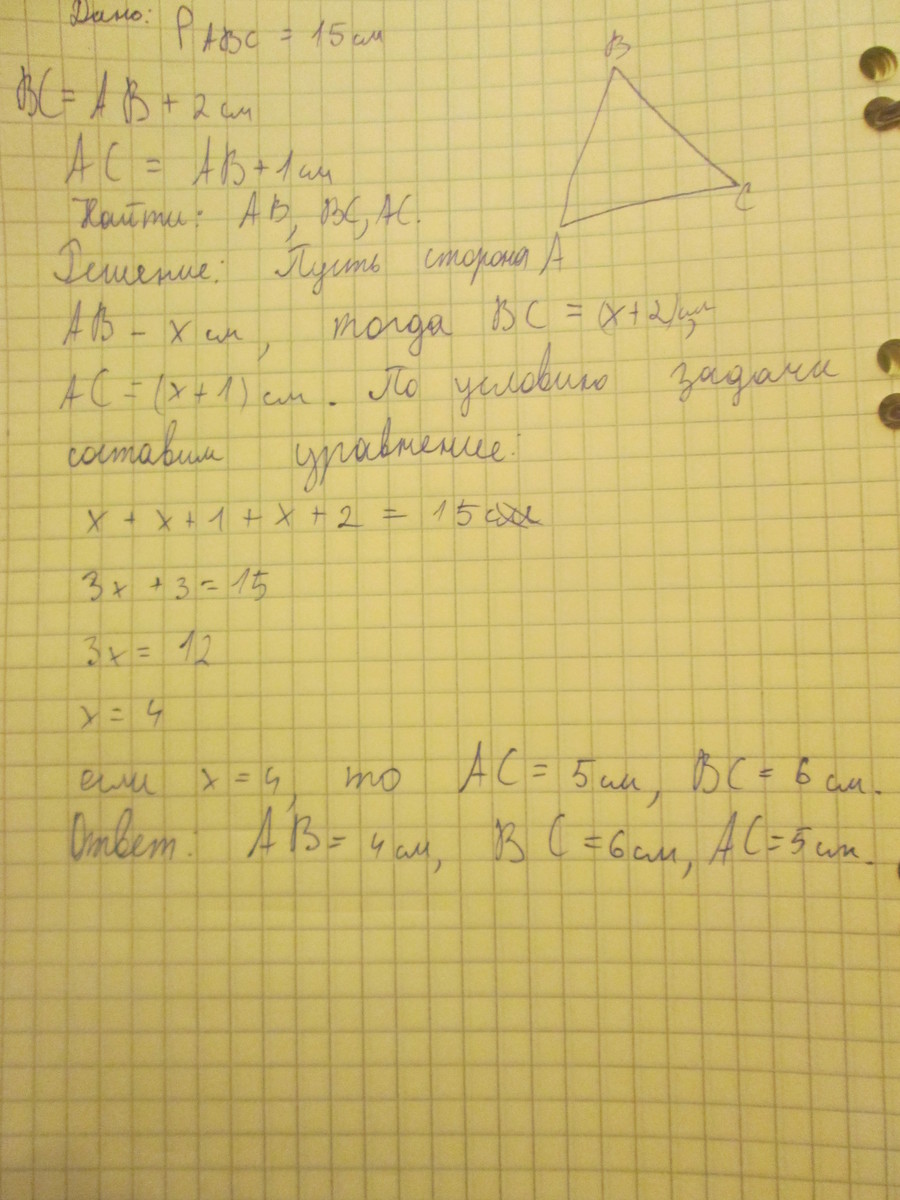 Дано: P ABC = 15 см
BC = AB + 2 см
AC = AB + 1 см
Найти: AB, BC, AC.
B
C
A
Решение: Пусть сторона
AB - x см, тогда BC = (x+2) см,
AC = (x+1) см. По условию задачи
составим уравнение:
x + x + 1 + x + 2 = 15
3x + 3 = 15
3x = 12
x = 4
если x = 4, то AC = 5 см, BC = 6 см.
Ответ: AB = 4 см, BC = 6 см, AC = 5 см.